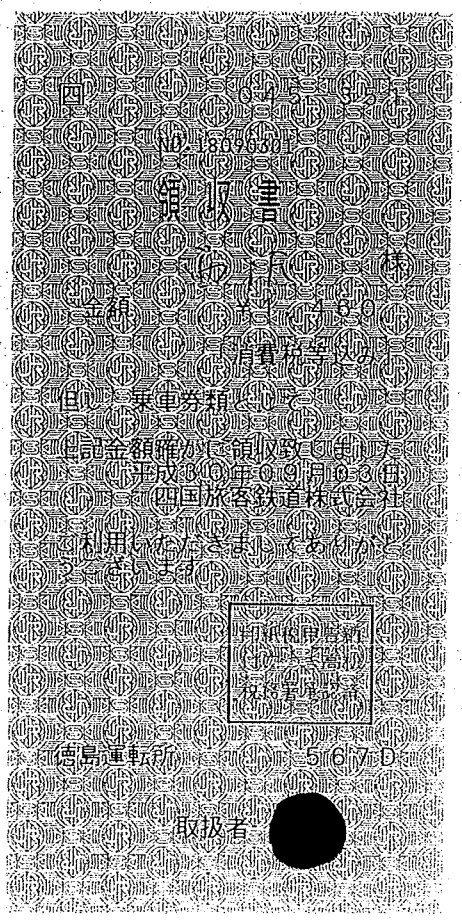 四 045-351
NO.18090301
領収書
様
金額 ¥1,460
「消費税等込み」
但し、乗車券類として
上記金額確かに領収致しました
平成30年09月03日
四国旅客鉄道株式会社
ご利用いただきましてありがと
うございます
印紙税申告納
付につき高松
税務署承認済
徳島運転所 567D
取扱者